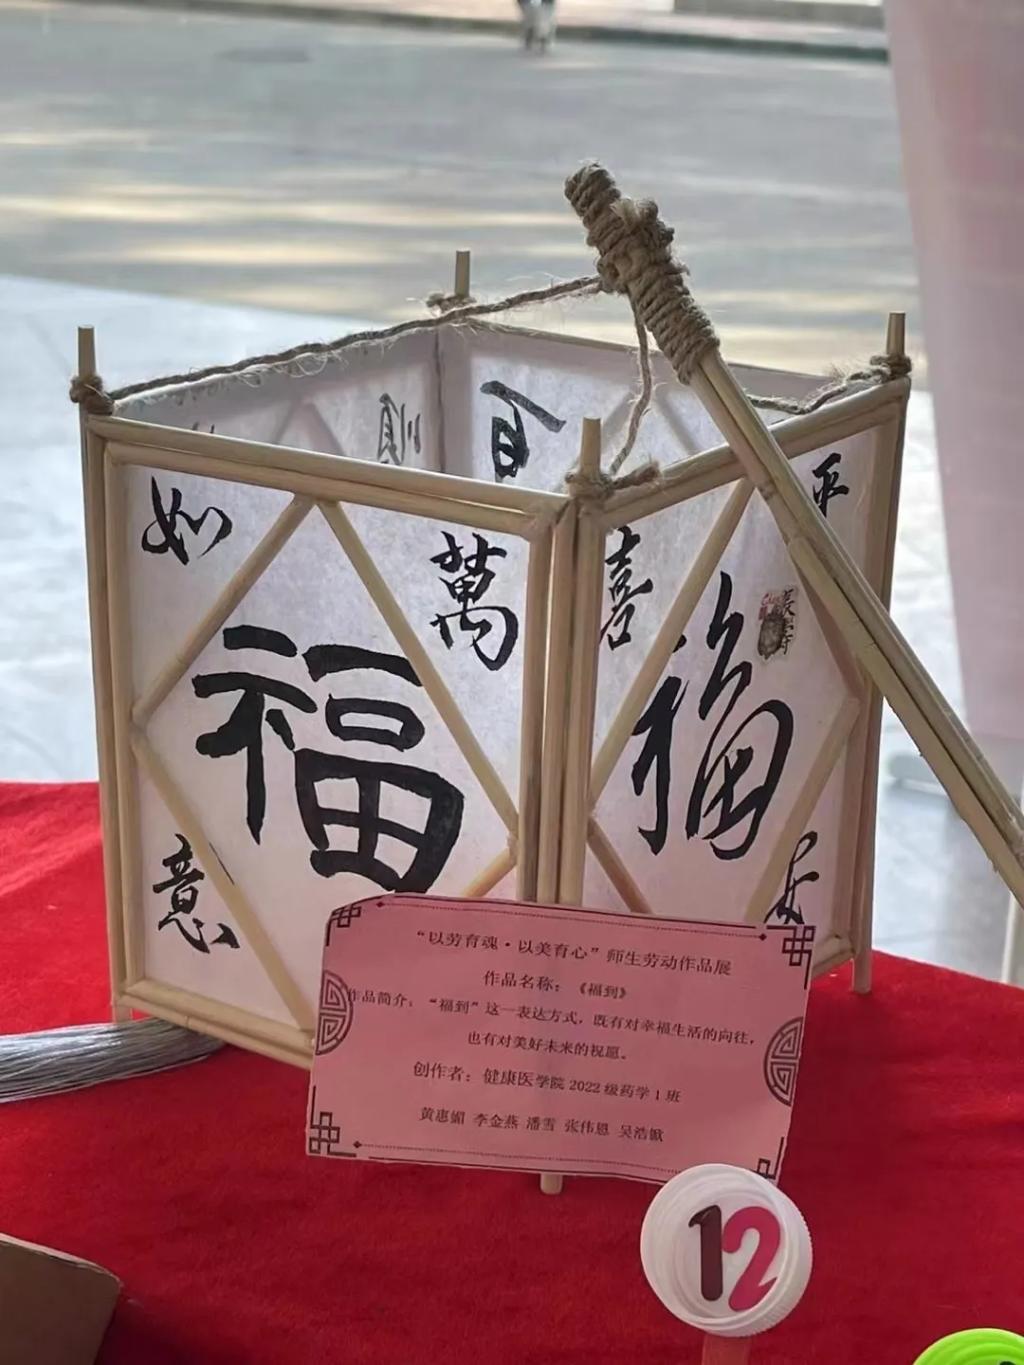 如
萬
福
意
喜
福
平
“以劳育魂·以美育心”师生劳动作品展
作品名称：《福到》
作品简介：“福到”这一表达方式，既有对幸福生活的向往，
也有对美好未来的祝愿。
创作者：健康医学院2022级药学1班
黄惠媚 李金燕 潘雪 张伟恩 吴浩
12